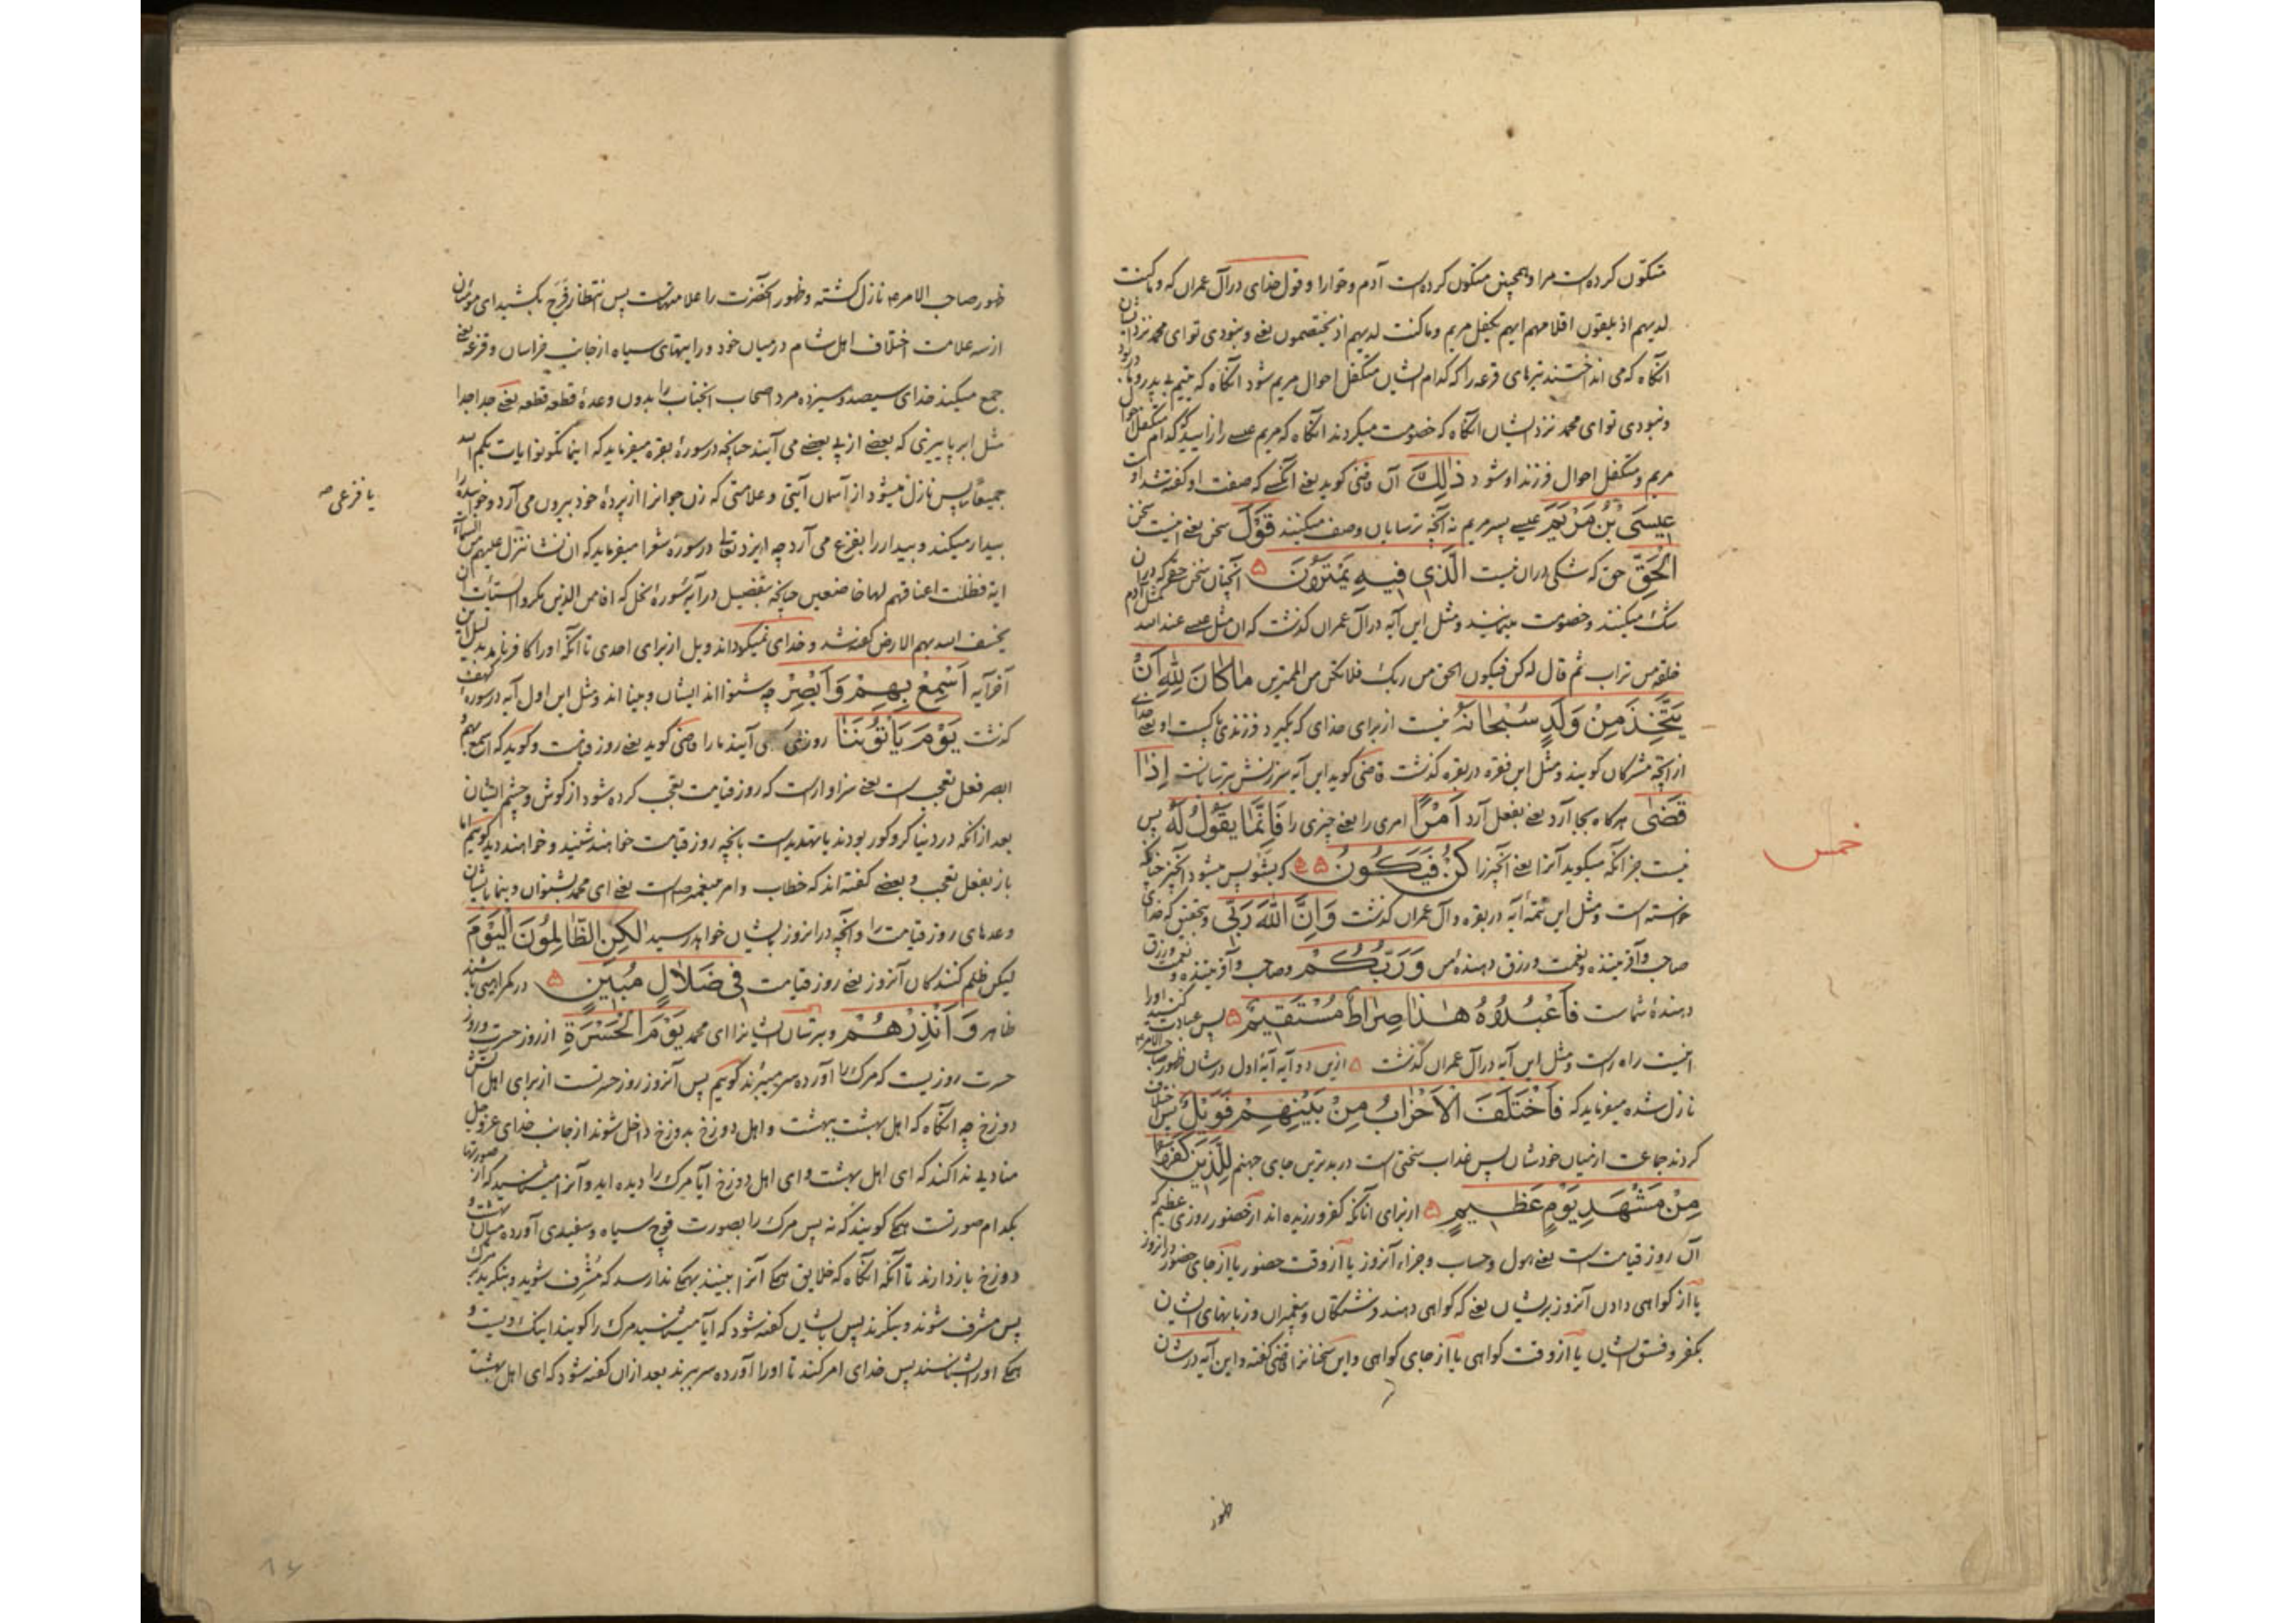 متکون کرده است مرا و همچنین متکون کرده است آدم و حوا را و قول خدای در آل عمران که و ما کنت
لدیهم اذ یلقون اقلامهم ایهم یکفل مریم و ما کنت لدیهم اذ یختصمون یعنی و نبودی تو ای محمد نزد ایشان
آنگاه که می انداختند تیرهای قرعه را که کدام ایشان متکفل احوال مریم شود آنگاه که یتیم بی پدر بود
و نبودی تو ای محمد نزد ایشان آنگاه که خصومت میکردند آنگاه که مریم عیسی را زایید که کدام متکفل احوال
مریم و متکفل احوال فرزند او شود ذٰلِكَ آن قاضی کوید یعنی آنکسی که صفت او گفته شد او
عِیسَی بْنُ مَرْیَمَ عیسی پسر مریم نه آنچه ترسایان وصف میکنند قَوْلَ سخن یعنی اینست سخن
الْحَقِّ حق که شکی دران نیست الَّذِی فِیهِ یَمْتَرُونَ ۵ آنچنان سخن حقی که دران
شک میکنند و خصومت مینمایند و مثل این آیه در آل عمران کذشت که ان مثل عیسی عند الله کمثل آدم
خلقه من تراب ثم قال له کن فیکون الحق من ربک فلا تکن من الممترین مَا كَانَ لِلّٰهِ اَنْ
یَتَّخِذَ مِنْ وَلَدٍ سُبْحَانَهُ نیست از برای خدای که بگیرد فرزندی پاکست او یعنی خدای
از آنچه مشرکان کویند و مثل این فقره در بقره کذشت قاضی کوید این آیه سرزنش ترسایانست اِذَا
قَضٰی هرکاه بجا آرد یعنی بفعل آرد اَمْرًا امری را یعنی چیزی را فَاِنَّمَا یَقُولُ لَهُ پس
نیست جز آنکه میکوید آنرا یعنی آنچیز را كُنْ فَیَكُونُ ۵ که بشو پس میشود آنچیز چنانچه
خواسته است و مثل این تتمهٔ آیه در بقره و آل عمران کذشت وَاِنَّ اللّٰهَ رَبِّی و بتحقیق که خدای
صاحب و آفریننده و نعمت و رزق دهندهٔ من وَرَبُّكُمْ و صاحب و آفریننده و نعمت و رزق
دهندهٔ شماست فَاعْبُدُوهُ هٰذَا صِرَاطٌ مُسْتَقِیمٌ ۵ پس عبادت کنید او را
اینست راه راست و مثل این آیه در آل عمران کذشت ۵ ازین دو آیه آیهٔ اول در شان ظهور صاحب الامر
نازل شده میفرماید که فَاخْتَلَفَ الْاَحْزَابُ مِنْ بَیْنِهِمْ فَوَیْلٌ پس اختلاف
کردند جماعت از میان خودشان پس عذاب سختی است در بدترین جای جهنم لِلَّذِینَ كَفَرُوا
مِنْ مَشْهَدِ یَوْمٍ عَظِیمٍ ۵ از برای آنانکه کفر ورزیده اند از حضور روزی عظیم که
آن روز قیامت است یعنی هول و حساب و جزاء آنروز یا از وقت حضور یا از جای حضور در آنروز
یا از کواهی دادن آنروز بریشان یعنی که کواهی دهند فرشتکان و پیغمبران و زبانهای ایشان
بکفر و فسق ایشان یا از وقت کواهی یا از جای کواهی و این سخنانرا قاضی گفته و این آیه در شان
خمس
ظهور
ظهور صاحب الامر نازل کشته و ظهور آنحضرت را علامتهاست پس انتظار فرج بکشید ای مؤمنان
از سه علامت اختلاف اهل شام در میان خود و رایتهای سیاه از جانب خراسان و فزعه یعنی
جمع میکند خدای سیصد و سیزده مرد اصحاب آنجناب را بدون وعدهٔ قطعه قطعه یعنی جدا جدا
مثل ابر پاییزی که بعضی از پی بعضی می آیند چنانچه در سورهٔ بقره میفرماید که اینما تکونوا یات بکم الله
جمیعا پس نازل میشود از آسمان آیتی و علامتی که زن جوانرا از پردهٔ خود بیرون می آرد و خوابیده را
بیدار میکند و بیدار را بفزع می آرد چه ایزد تعالی در سوره شعرا میفرماید که ان نشا ننزل علیهم من السماء
ایة فظلت اعناقهم لها خاضعین چنانچه بتفضیل در آیه سورهٔ نحل که افامن الذین مکروا السیئات ان
یخسف الله بهم الارض گفته شد و خدای نمیکرداند ویل از برای احدی تا آنکه او را کافر نامد بدلیل این
آخر آیه اَسْمِعْ بِهِمْ وَاَبْصِرْ چه شنوا اند ایشان و بینا اند و مثل این اول آیه در سورهٔ کهف
کذشت یَوْمَ یَاْتُونَنَا روزی که می آیند ما را قاضی کوید یعنی روز قیامت و کوید که اسمع بهم
ابصر فعل تعجب است یعنی سزاوار است که روز قیامت تعجب کرده شود از کوش و چشم ایشان
بعد از آنکه در دنیا کر و کور بودند یا تهدیدست بآنچه روز قیامت خواهند شنید و خواهند دید کوییم اما
باز بفعل تعجب و بعضی گفته اند که خطاب و امر پیغمبر است یعنی ای محمد بشنوان و بنما بایشان
وعدهای روز قیامت را و آنچه در آنروز بایشان خواهد رسید لٰكِنِ الظَّالِمُونَ الْیَوْمَ
لیکن ظلم کنندکان آنروز یعنی روز قیامت فِی ضَلَالٍ مُبِینٍ ۵ در کمراهی باشند
ظاهر وَاَنْذِرْهُمْ و بترسان ایشانرا ای محمد یَوْمَ الْحَسْرَةِ از روز حسرت و روز
حسرت روزیست که مرک را آورده سر میبرند کوییم پس آنروز روز حسرتست از برای اهل آتش
دوزخ چه آنگاه که اهل بهشت ببهشت و اهل دوزخ بدوزخ داخل شوند از جانب خدای عز و جل
منادیی ندا کند که ای اهل بهشت و ای اهل دوزخ آیا مرک را دیده اید و آنرا میشناسید که از صورتها
بکدام صورتست همکی کویند که نه پس مرک را بصورت قوچ سیاه و سفیدی آورده میان بهشت و
دوزخ باز دارند تا آنکه آنگاه که خلایق همکی آنرا ببینند بهمکی ندا رسد که مشرف شوید و بنکرید بمرک
پس مشرف شوند و بنکرند پس بایشان گفته شود که آیا میشناسید مرک را کویند اینک اویست و
همکی او را بشناسند پس خدای امر کند تا او را آورده سر ببرند بعد ازان گفته شود که ای اهل بهشت
یا فزعی